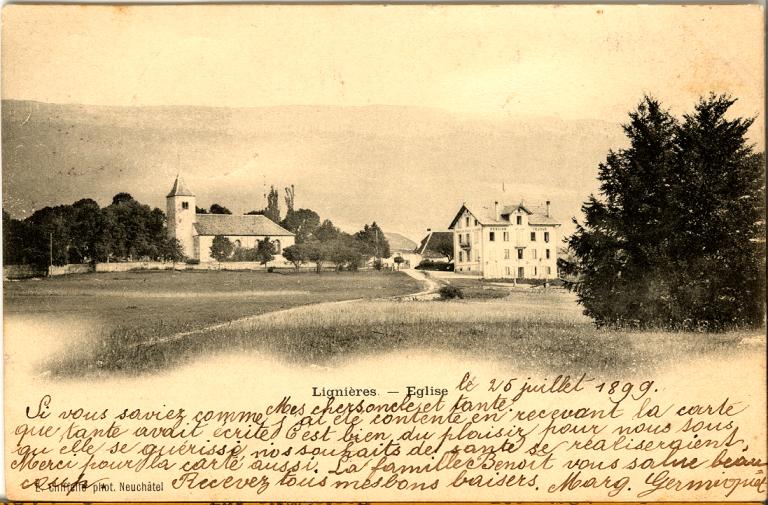 PENSION
Lignières. — Eglise
le 25 juillet 1899.
Mes chers oncle et tante
Si vous saviez comme j'ai été contente en recevant la carte
que tante avait écrite. C'est bien du plaisir pour nous sous
qu'elle se guérisse nos souhaits de santé se réaliseraient
Merci pour la carte aussi. La famille Benoit vous salue beau
Recevez tous mes bons baisers. Marg. Germiquet
phot. Neuchâtel